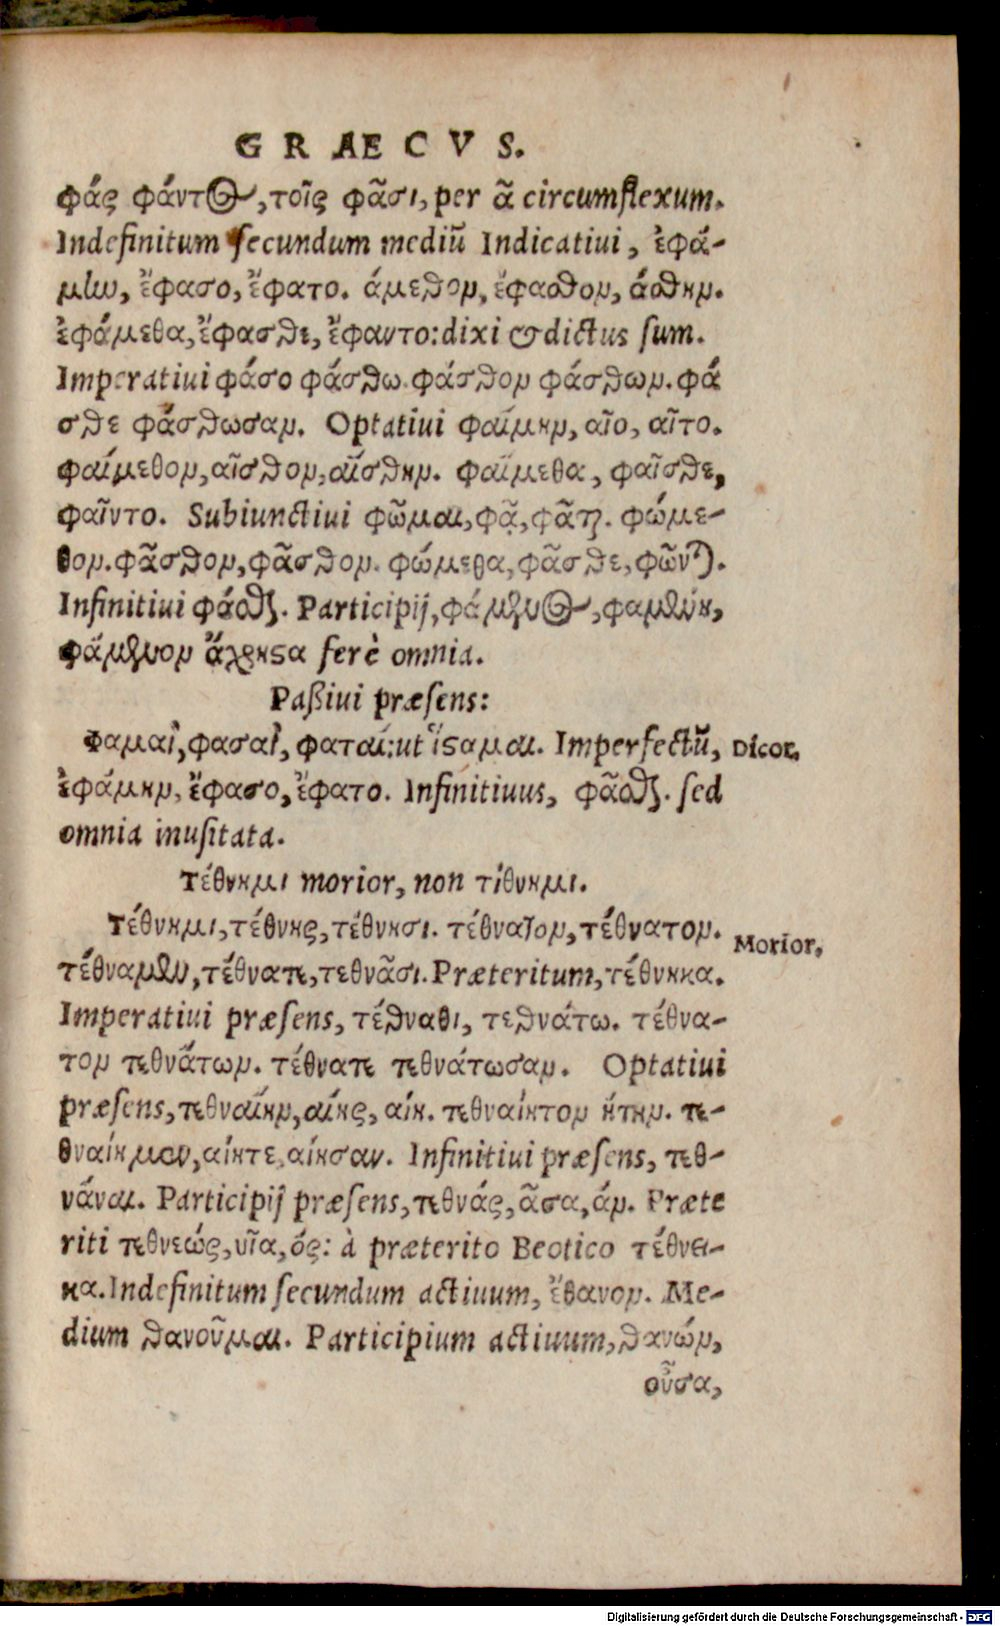 GRAECVS.
φάς φάντος, τοῖς φᾶσι, per ᾶ circumflexum.
Indefinitum secundum mediũ Indicatiui, ἐφά-
μην, ἔφασο, ἔφατο. άμεθον, έφασθον, άσθην.
ἐφάμεθα, ἔφασθε, ἔφαντο: dixi & dictus sum.
Imperatiui φάσο φάσθω. φάσθον φάσθων. φά
σθε φάσθωσαν. Optatiui φαίμην, αῖο, αῖτο.
φαίμεθον, αῖσθον, αίσθην. φαίμεθα, φαῖσθε,
φαῖντο. Subiunctiui φῶμαι, φᾷ, φᾶται. φώμε-
θον. φᾶσθον, φᾶσθον. φώμεθα, φᾶσθε, φῶνται.
Infinitiui φάσθαι. Participij, φάμενος, φαμένη,
φάμενον ἄχρηστα ferè omnia.
Paßiui præsens:
Φαμαὶ, φασαὶ, φαταί: ut ἵσαμαι. Imperfectũ,
Dicor.
ἐφάμην, ἔφασο, ἔφατο. Infinitiuus, φᾶσθαι. sed
omnia inusitata.
Τέθνημι morior, non τίθνημι.
Τέθνημι, τέθνης, τέθνησι. τέθνατον, τέθνατον.
Morior.
τέθναμεν, τέθνατε, τεθνᾶσι. Præteritum, τέθνηκα.
Imperatiui præsens, τέθναθι, τεθνάτω. τέθνα-
τον τεθνάτων. τέθνατε τεθνάτωσαν. Optatiui
præsens, τεθναίην, αίης, αίη. τεθναίητον ήτην. τε-
θναίημεν, αίητε, αίησαν. Infinitiui præsens, τεθ-
νάναι. Participij præsens, τεθνάς, ᾶσα, άν. Præte
riti τεθνεώς, υῖα, ός: à præterito Beotico τέθνει-
κα. Indefinitum secundum actiuum, ἔθανον. Me-
dium θανοῦμαι. Participium actiuum, θανών,
οῦσα,
Digitalisierung gefördert durch die Deutsche Forschungsgemeinschaft - DFG